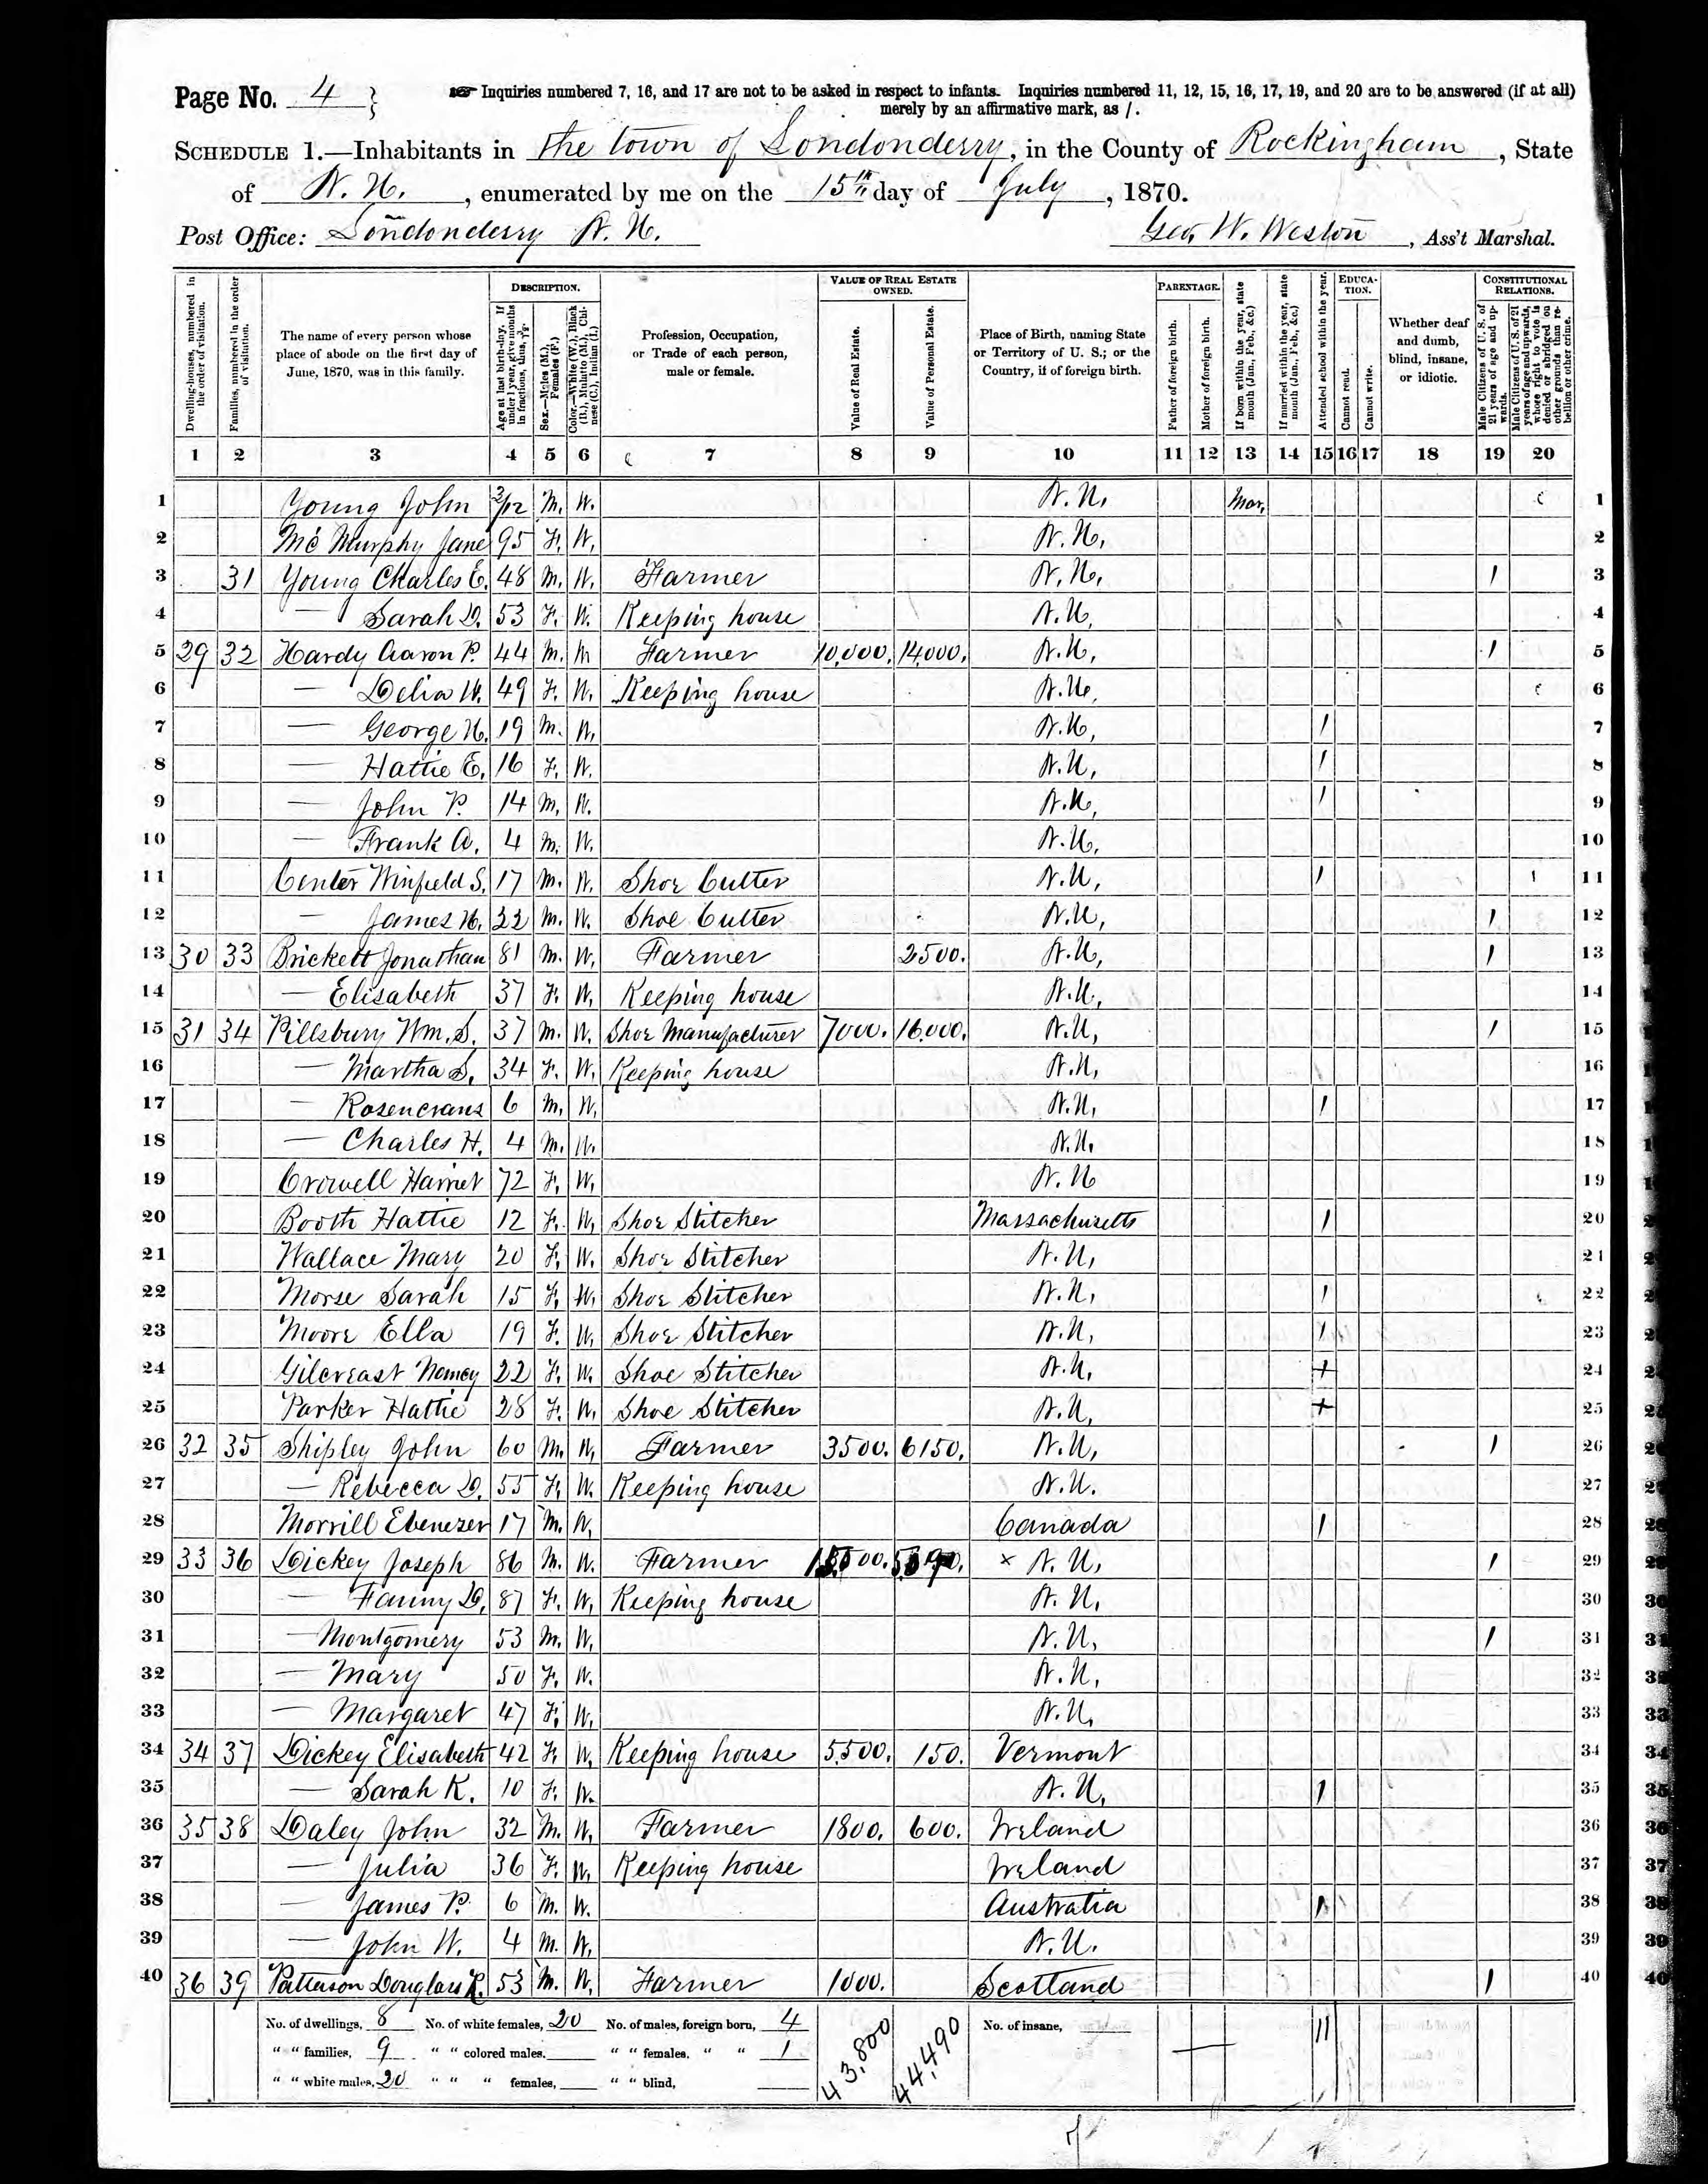 Page No. 4 }
Inquiries numbered 7, 16, and 17 are not to be asked in respect to infants. Inquiries numbered 11, 12, 15, 16, 17, 19, and 20 are to be answered (if at all)
merely by an affirmative mark, as /.
SCHEDULE 1.—Inhabitants in the town of Londonderry, in the County of Rockingham, State
of N. H., enumerated by me on the 15th day of July, 1870.
Post Office: Londonderry N. H. Geo. W. Weston, Ass't Marshal.
Dwelling-houses, numbered in the order of visitation.
Families, numbered in the order of visitation.
The name of every person whose place of abode on the first day of June, 1870, was in this family.
DESCRIPTION.
Age at last birth-day. If under 1 year, give months in fractions, thus, 3/12.
Sex.—Males (M.), Females (F.)
Color.—White (W.), Black (B.), Mulatto (M.), Chinese (C.), Indian (I.)
Profession, Occupation, or Trade of each person, male or female.
VALUE OF REAL ESTATE OWNED.
Value of Real Estate.
Value of Personal Estate.
Place of Birth, naming State or Territory of U. S.; or the Country, if of foreign birth.
PARENTAGE.
Father of foreign birth.
Mother of foreign birth.
If born within the year, state month (Jan., Feb., &c.)
If married within the year, state month (Jan., Feb., &c.)
Attended school within the year.
EDUCATION.
Cannot read.
Cannot write.
Whether deaf and dumb, blind, insane, or idiotic.
CONSTITUTIONAL RELATIONS.
Male Citizens of U. S. of 21 years of age and upwards.
Male Citizens of U. S. of 21 years of age and upwards, whose right to vote is denied or abridged on other grounds than rebellion or other crime.
1 2 3 4 5 6 7 8 9 10 11 12 13 14 15 16 17 18 19 20
1 Young John 3/12 M. W. N. H. Mar. 1
2 Mc Murphy Jane 95 F. W. N. H. 2
3 31 Young Charles E. 48 M. W. Farmer N. H. / 3
4 — Sarah D. 53 F. W. Keeping house N. H. 4
5 29 32 Hardy Aaron P. 44 M. M Farmer 10,000. 14,000. N. H. / 5
6 — Delia W. 49 F. W. Keeping house N. H. 6
7 — George H. 19 M. W. N. H. / 7
8 — Hattie E. 16 F. W. N. H. / 8
9 — John P. 14 M. W. N. H. / 9
10 — Frank A. 4 M. W. N. H. 10
11 Center Winfield S. 17 M. W. Shoe Cutter N. H. / 11
12 — James H. 22 M. W. Shoe Cutter N. H. / 12
13 30 33 Brickett Jonathan 81 M. W. Farmer 2500. N. H. / 13
14 — Elisabeth 37 F. W. Keeping house N. H. 14
15 31 34 Pillsbury Wm. S. 37 M. W. Shoe Manufacturer 7000. 16,000. N. H. / 15
16 — Martha S. 34 F. W. Keeping house N. H. 16
17 — Rosencrans 6 M. W. N. H. / 17
18 — Charles H. 4 M. W. N. H. 18
19 Crowell Harriet 72 F. W. N. H 19
20 Booth Hattie 12 F. W. Shoe Stitcher Massachusetts / 20
21 Wallace Mary 20 F. W. Shoe Stitcher N. H. 21
22 Morse Sarah 15 F. W. Shoe Stitcher N. H. / 22
23 Moore Ella 19 F. W. Shoe Stitcher N. H. / 23
24 Gilcreast Nancy 22 F. W. Shoe Stitcher N. H. + 24
25 Parker Hattie 28 F. W. Shoe Stitcher N. H. + 25
26 32 35 Shipley John 60 M. W. Farmer 3500. 6150. N. H. / 26
27 — Rebecca D. 55 F. W. Keeping house N. H. 27
28 Morrill Ebenezer 17 M. W. Canada / 28
29 33 36 Dickey Joseph 86 M. W. Farmer × N. H. / 29
30 — Fanny D. 87 F. W. Keeping house N. H. 30
31 — Montgomery 53 M. W. N. H. / 31
32 — Mary 50 F. W. N. H. 32
33 — Margaret 47 F. W. N. H. 33
34 34 37 Dickey Elisabeth 42 F. W. Keeping house 5,500. 150. Vermont 34
35 — Sarah K. 10 F. W. N. H. / 35
36 35 38 Daley John 32 M. W. Farmer 1800. 600. Ireland 36
37 — Julia 36 F. W. Keeping house Ireland 37
38 — James P. 6 M. W. Australia / 38
39 — John W. 4 M. W. N. H. 39
40 36 39 Patterson Douglass R. 53 M. W. Farmer 1000. Scotland / 40
No. of dwellings, 8 No. of white females, 20 No. of males, foreign born, 4 43,800 44,490 No. of insane, 11
" " families, 9 " " colored males, " " females, " " 1
" " white males, 20 " " " females, " " blind,